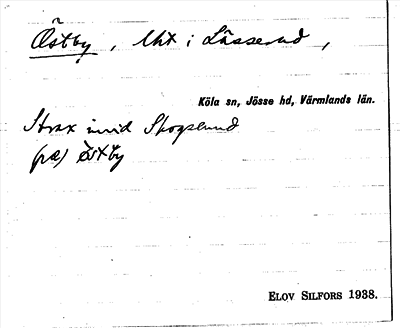 Östby, lht i Lässerud,
Köla sn, Jösse hd, Värmlands län.
Strax invid Skogslund
(på) Östby
ELOV SILFORS 1938.